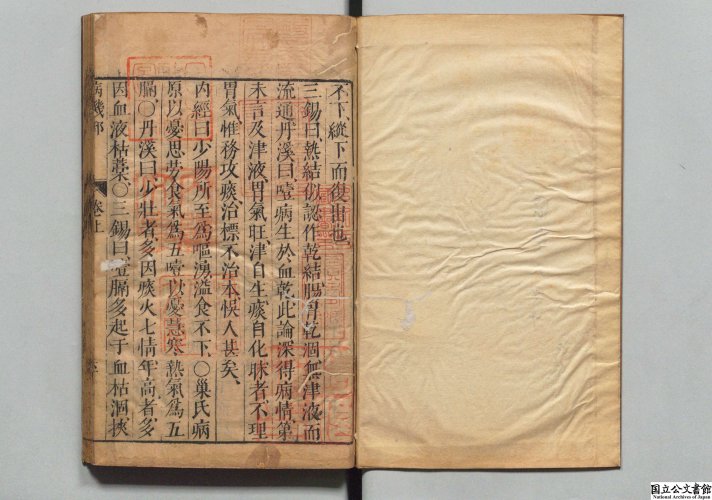 不下、縱下而復出也、
三錫曰、熱結似認作乾結、腸胃乾涸無津液而
流通、丹溪曰、噎病生於血乾、此論深得病情、第
未言及津液、胃氣旺、津自生、痰自化、昧者不理
胃氣、惟務攻痰、治標不治本、悞人甚矣、
內經曰、少陽所至、爲嘔湧、溢食不下、○巢氏病
原、以憂思勞食氣爲五噎、以憂恚寒熱氣爲五
膈、○丹溪曰、少壯者、多因痰火七情、年高者、多
因血液枯槁、○三錫曰、噎膈多起于血枯涸、挾
病機部
卷上
国立公文書館
National Archives of Japan